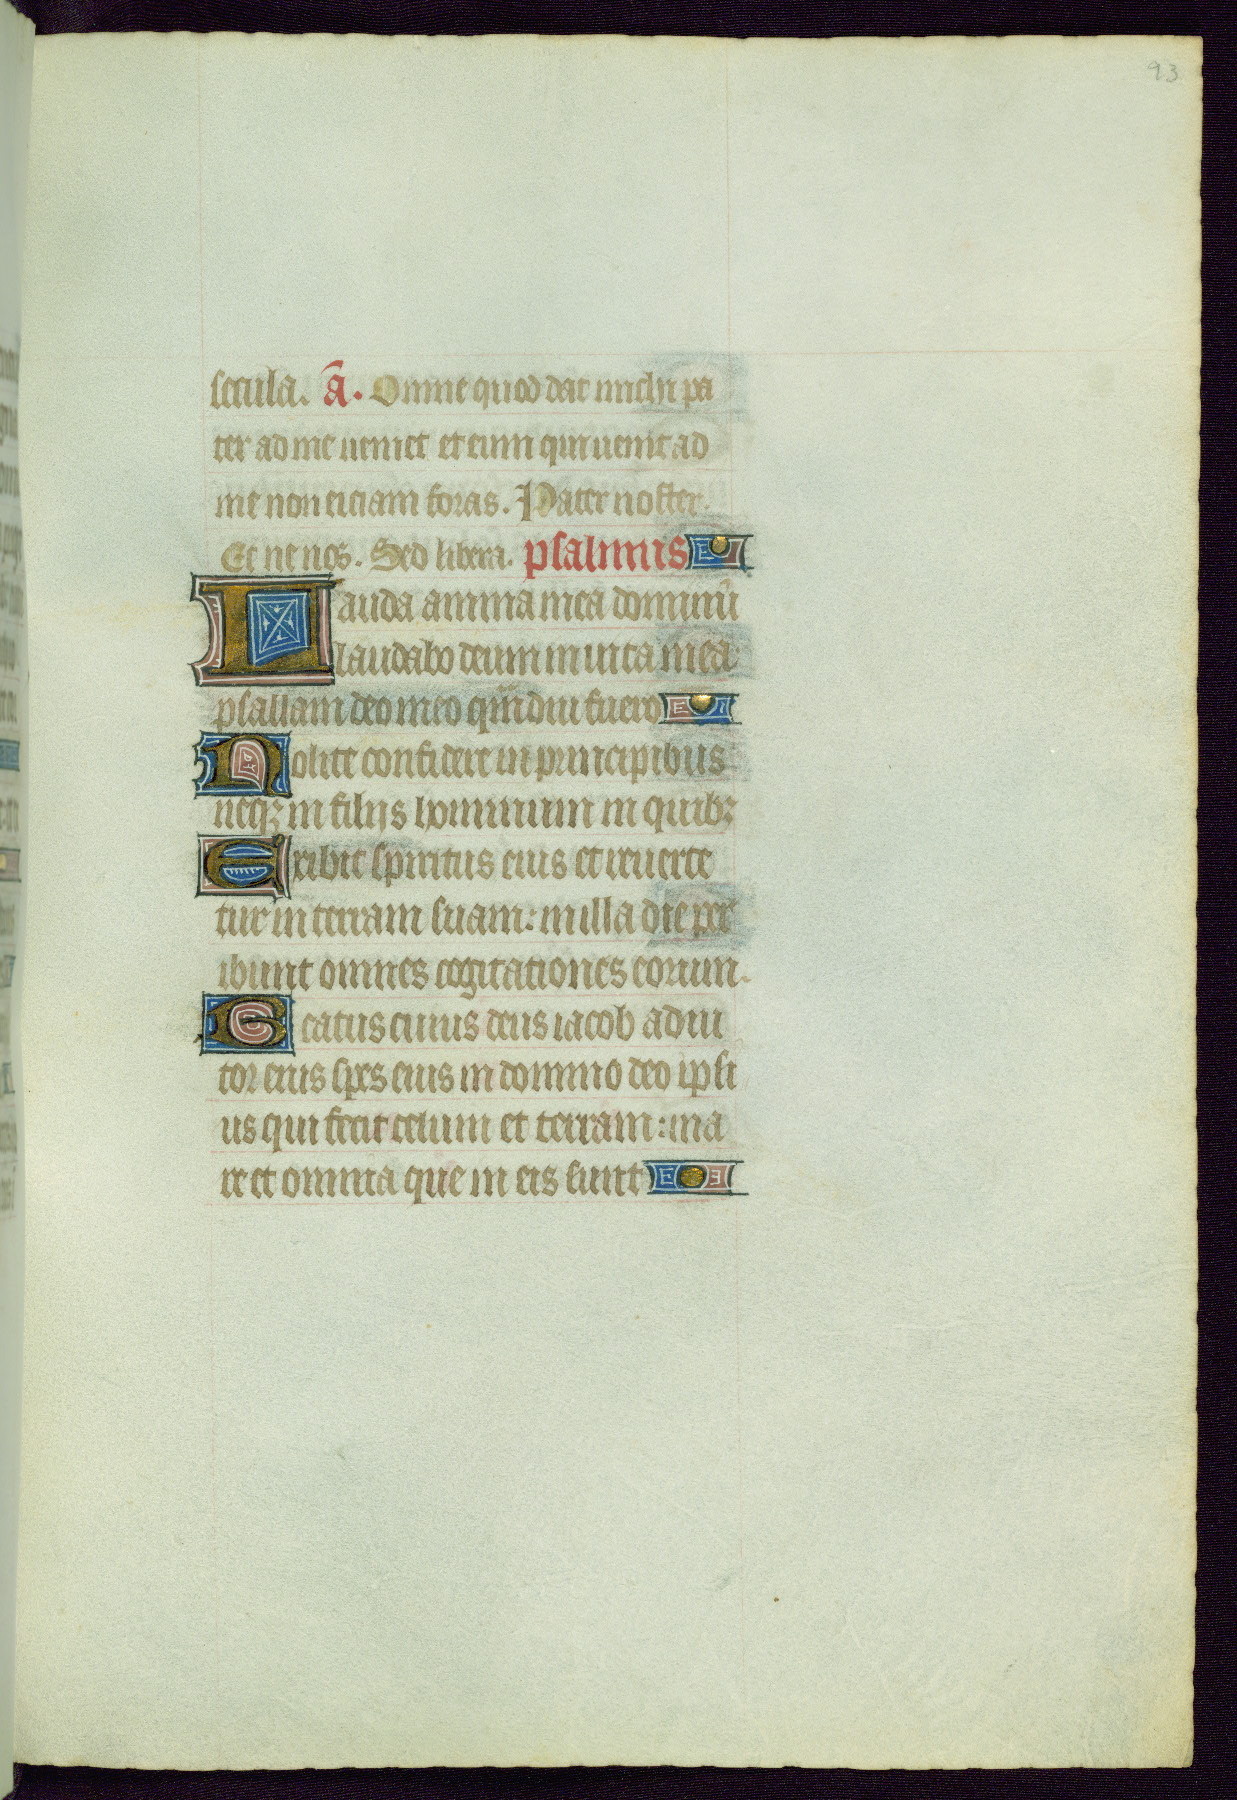 93
secula. Ā. Omne quod dat michi pa
ter ad me veniet et eum qui venit ad
me non eiciam foras. Pater noster.
Et ne nos. Sed libera. psalmus
Lauda anima mea dominū
laudabo deum in vita mea
psallam deo meo quādiu fuero
Nolite confidere in principibus
neqꝫ in filijs hominum in quibꝫ
Exibit spiritus eius et reverte
tur in terram suam: in illa die per
ibunt omnes cogitationes eorum.
Beatus cuius deus iacob adiu
tor eius spes eius in domino deo ipsi
us qui fecit celum et terram: ma
re et omnia que in eis sunt